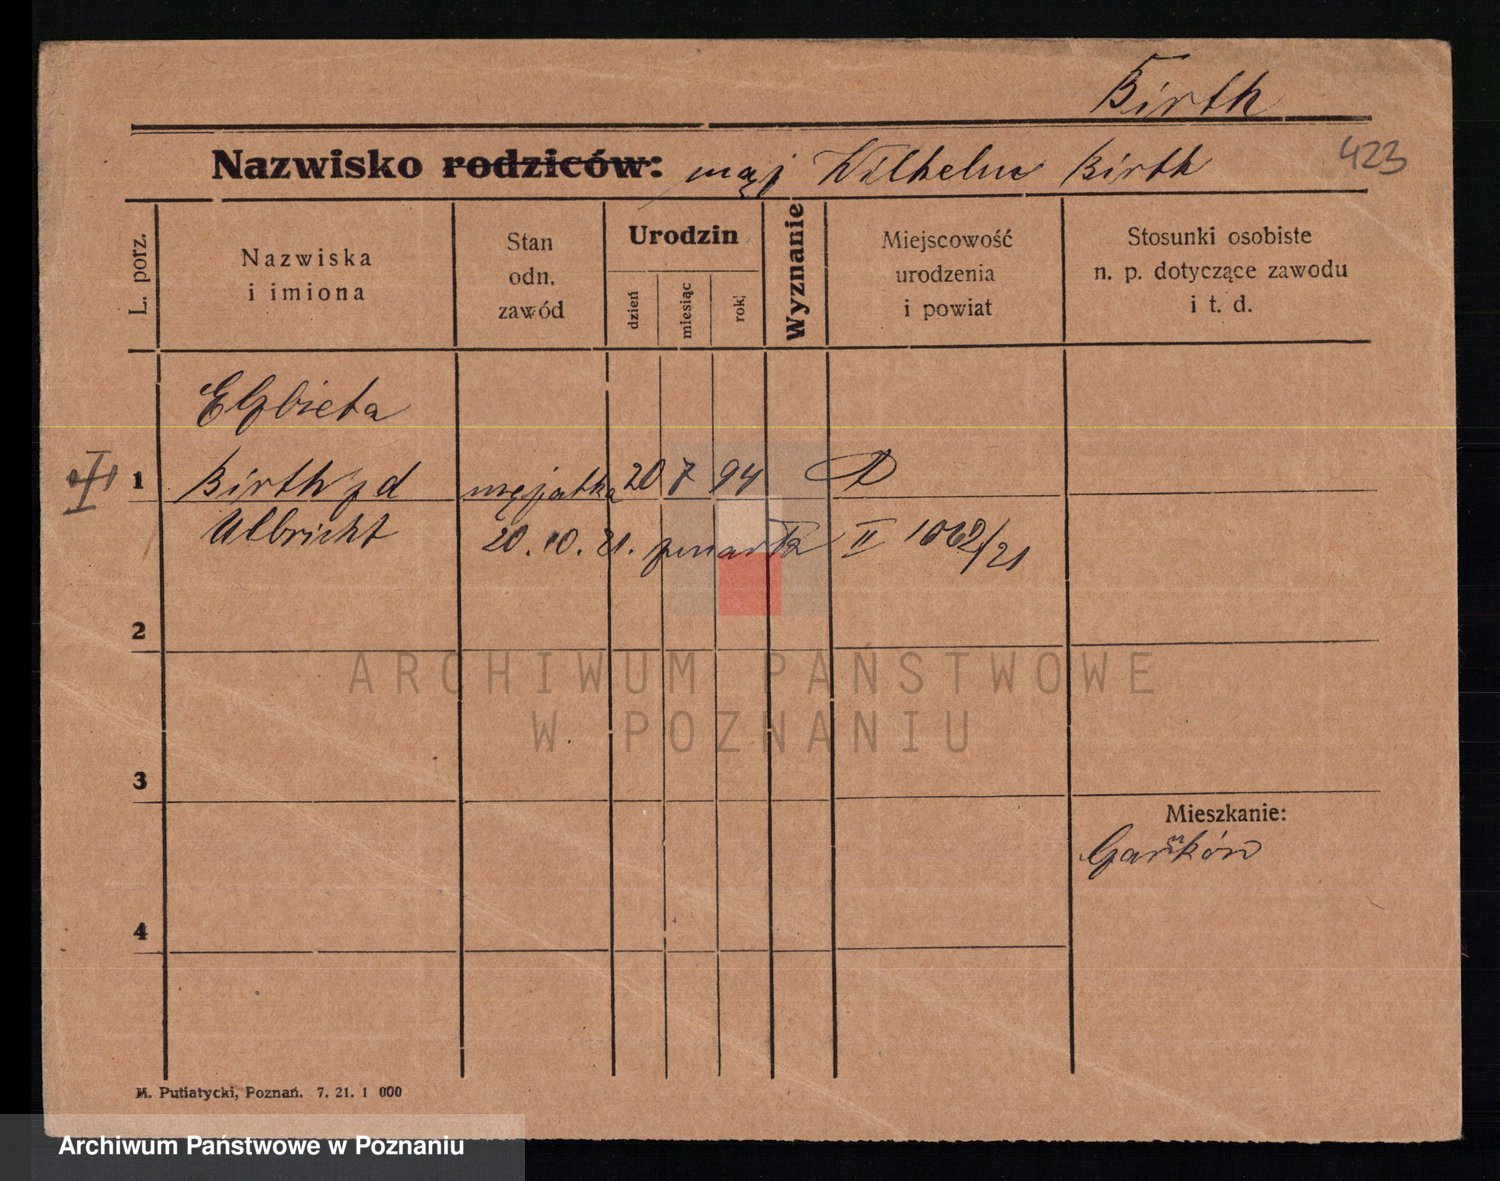 Birth
423
Nazwisko rodziców: mąż Wilhelm Birth
L. porz.
Nazwiska
i imiona
Stan
odn.
zawód
Urodzin
dzień
miesiąc
rok
Wyznanie
Miejscowość
urodzenia
i powiat
Stosunki osobiste
n. p. dotyczące zawodu
i t. d.
Elżbieta
1 Birth z d mężatka 20 7 94
Ulbricht 20. 10. 21. zmarła II 1062/21
2
3
4
Mieszkanie:
M. Putiatycki, Poznań. 7. 21. 1 000
ARCHIWUM PAŃSTWOWE
W POZNANIU
Archiwum Państwowe w Poznaniu